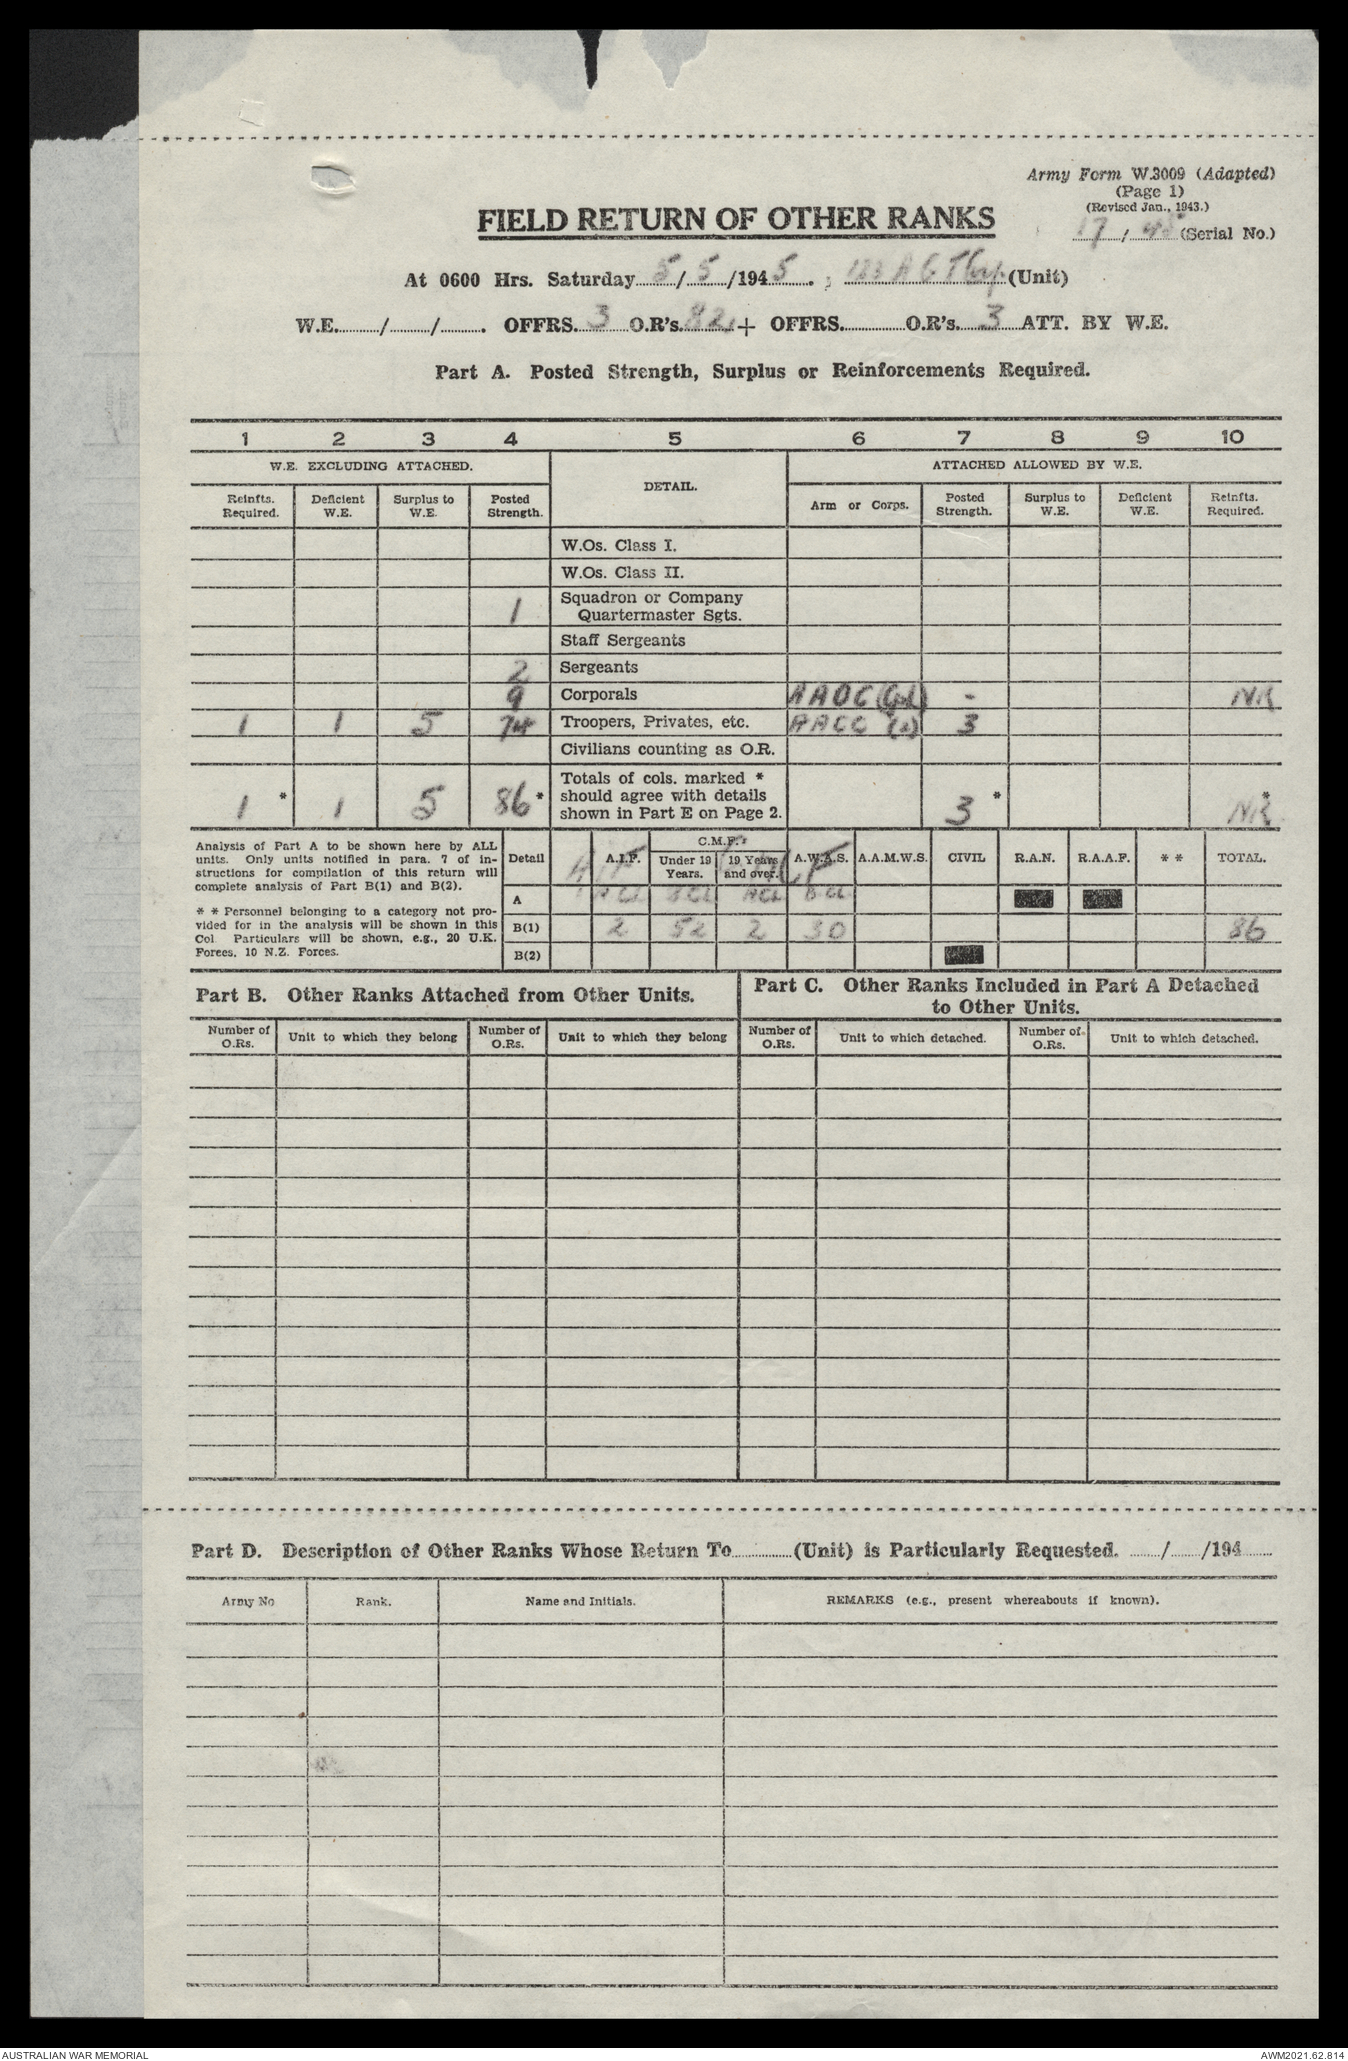 Army Form W.3009 (Adapted)
(Page 1)
(Revised Jan., 1943.)
FIELD RETURN OF OTHER RANKS
17 / 45 (Serial No.)
At 0600 Hrs. Saturday 5 / 5 /1945. ; A G T Coy. (Unit)
W.E. / / . OFFRS. 3 O.R's. 82 + OFFRS. O.R's. 3 ATT. BY W.E.
Part A. Posted Strength, Surplus or Reinforcements Required.
1 2 3 4 5 6 7 8 9 10
W.E. EXCLUDING ATTACHED. DETAIL. ATTACHED ALLOWED BY W.E.
Reinfts. Required. Deficient W.E. Surplus to W.E. Posted Strength. Arm or Corps. Posted Strength. Surplus to W.E. Deficient W.E. Reinfts. Required.
W.Os. Class I.
W.Os. Class II.
1 Squadron or Company
Quartermaster Sgts.
Staff Sergeants
2 Sergeants
9 Corporals AAOC - NR
1 1 5 74 Troopers, Privates, etc. AACC 3
Civilians counting as O.R.
Totals of cols. marked *
should agree with details
shown in Part E on Page 2.
1 * 1 5 86 * 3 * NR *
Analysis of Part A to be shown here by ALL
units. Only units notified in para. 7 of in-
structions for compilation of this return will
complete analysis of Part B(1) and B(2).
* * Personnel belonging to a category not pro-
vided for in the analysis will be shown in this
Col. Particulars will be shown, e.g., 20 U.K.
Forces, 10 N.Z. Forces.
Detail A.I.F. C.M.F. Under 19 Years. 19 Years and over. A.W.A.S. A.A.M.W.S. CIVIL R.A.N. R.A.A.F. * * TOTAL.
AIF CMF
A A CL B CL A CL B CL
B(1) 2 52 2 30 86
B(2)
Part B. Other Ranks Attached from Other Units.
Part C. Other Ranks Included in Part A Detached
to Other Units.
Number of O.Rs. Unit to which they belong Number of O.Rs. Unit to which they belong Number of O.Rs. Unit to which detached. Number of O.Rs. Unit to which detached.
Part D. Description of Other Ranks Whose Return To (Unit) is Particularly Requested. / /194
Army No Rank. Name and Initials. REMARKS (e.g., present whereabouts if known).
AUSTRALIAN WAR MEMORIAL AWM2021.62.814